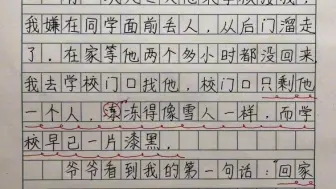 我嫌在同学面前丢人，从后门溜走
了．在家等他两个多小时都没回来，
我去学校门口找他，校门口只剩他
一个人，冻得像雪人一样，而学
校早已一片漆黑．
爷爷看到我的第一句话：“回家